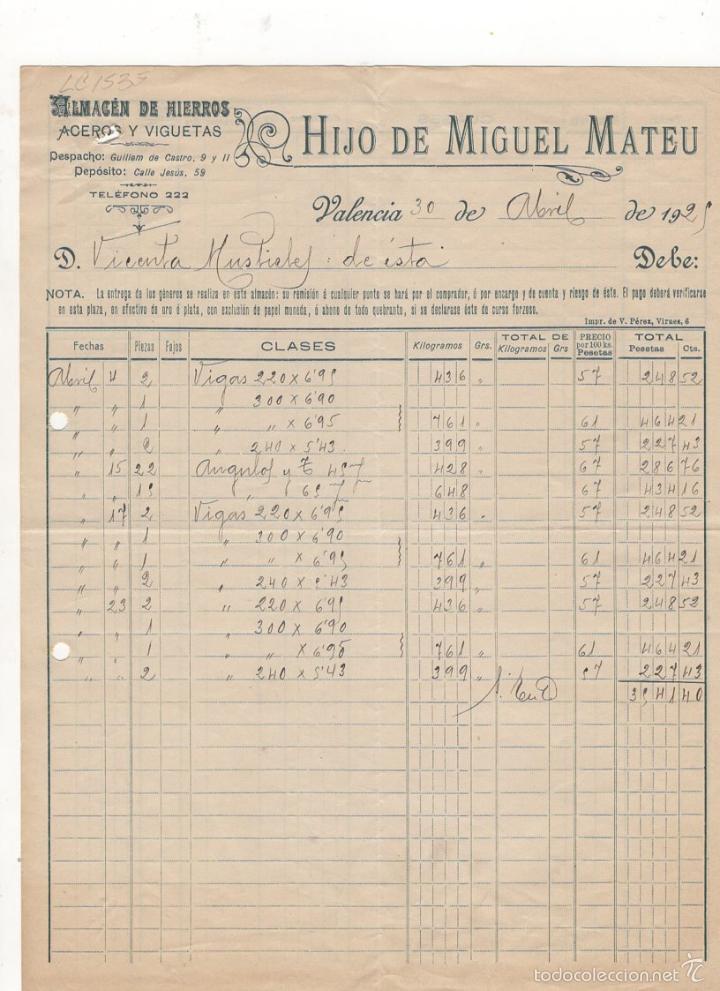 LC 1535
ALMACÉN DE HIERROS
ACEROS Y VIGUETAS
Despacho: Guillem de Castro, 9 y 11
Depósito: Calle Jesús, 59
TELÉFONO 222
HIJO DE MIGUEL MATEU
Valencia 30 de Abril de 1925
D. Vicenta Mustieles: de ésta Debe:
NOTA. La entrega de los géneros se realiza en este almacén: su remisión á cualquier punto se hará por el comprador, ó por encargo y de cuenta y riesgo de éste. El pago deberá verificarse
en esta plaza, en efectivo de oro ó plata, con exclusión de papel moneda, ó abono de todo quebranto, si se declarase éste de curso forzoso.
Impr. de V. Pérez, Virues, 6
Fechas Piezas Fajos CLASES Kilogramos Grs. TOTAL DE Kilogramos Grs PRECIO por 100 ks. Pesetas TOTAL Pesetas Cts.
Abril 4 2 Vigas 220 x 6'95 436 " 57 248 52
" " 1 " 300 x 6'90
" " 1 " " x 6'95 761 " 61 464 21
" " 2 " 240 x 5'43 399 " 57 227 43
" 15 22 Angulos y T 45 428 " 67 286 76
" " 15 " " 65 648 67 434 16
" 17 2 Vigas 220 x 6'95 436 " 57 248 52
" " 1 " 300 x 6'90
" " 1 " " x 6'95 761 " 61 464 21
" " 2 " 240 x 5'43 399 " 57 227 43
" 23 2 " 220 x 6'95 436 " 57 248 52
" " 1 " 300 x 6'90
" " 1 " " x 6'95 761 " 61 464 21
" " 2 " 240 x 5'43 399 " 57 227 43
3541 40
todocoleccion.net